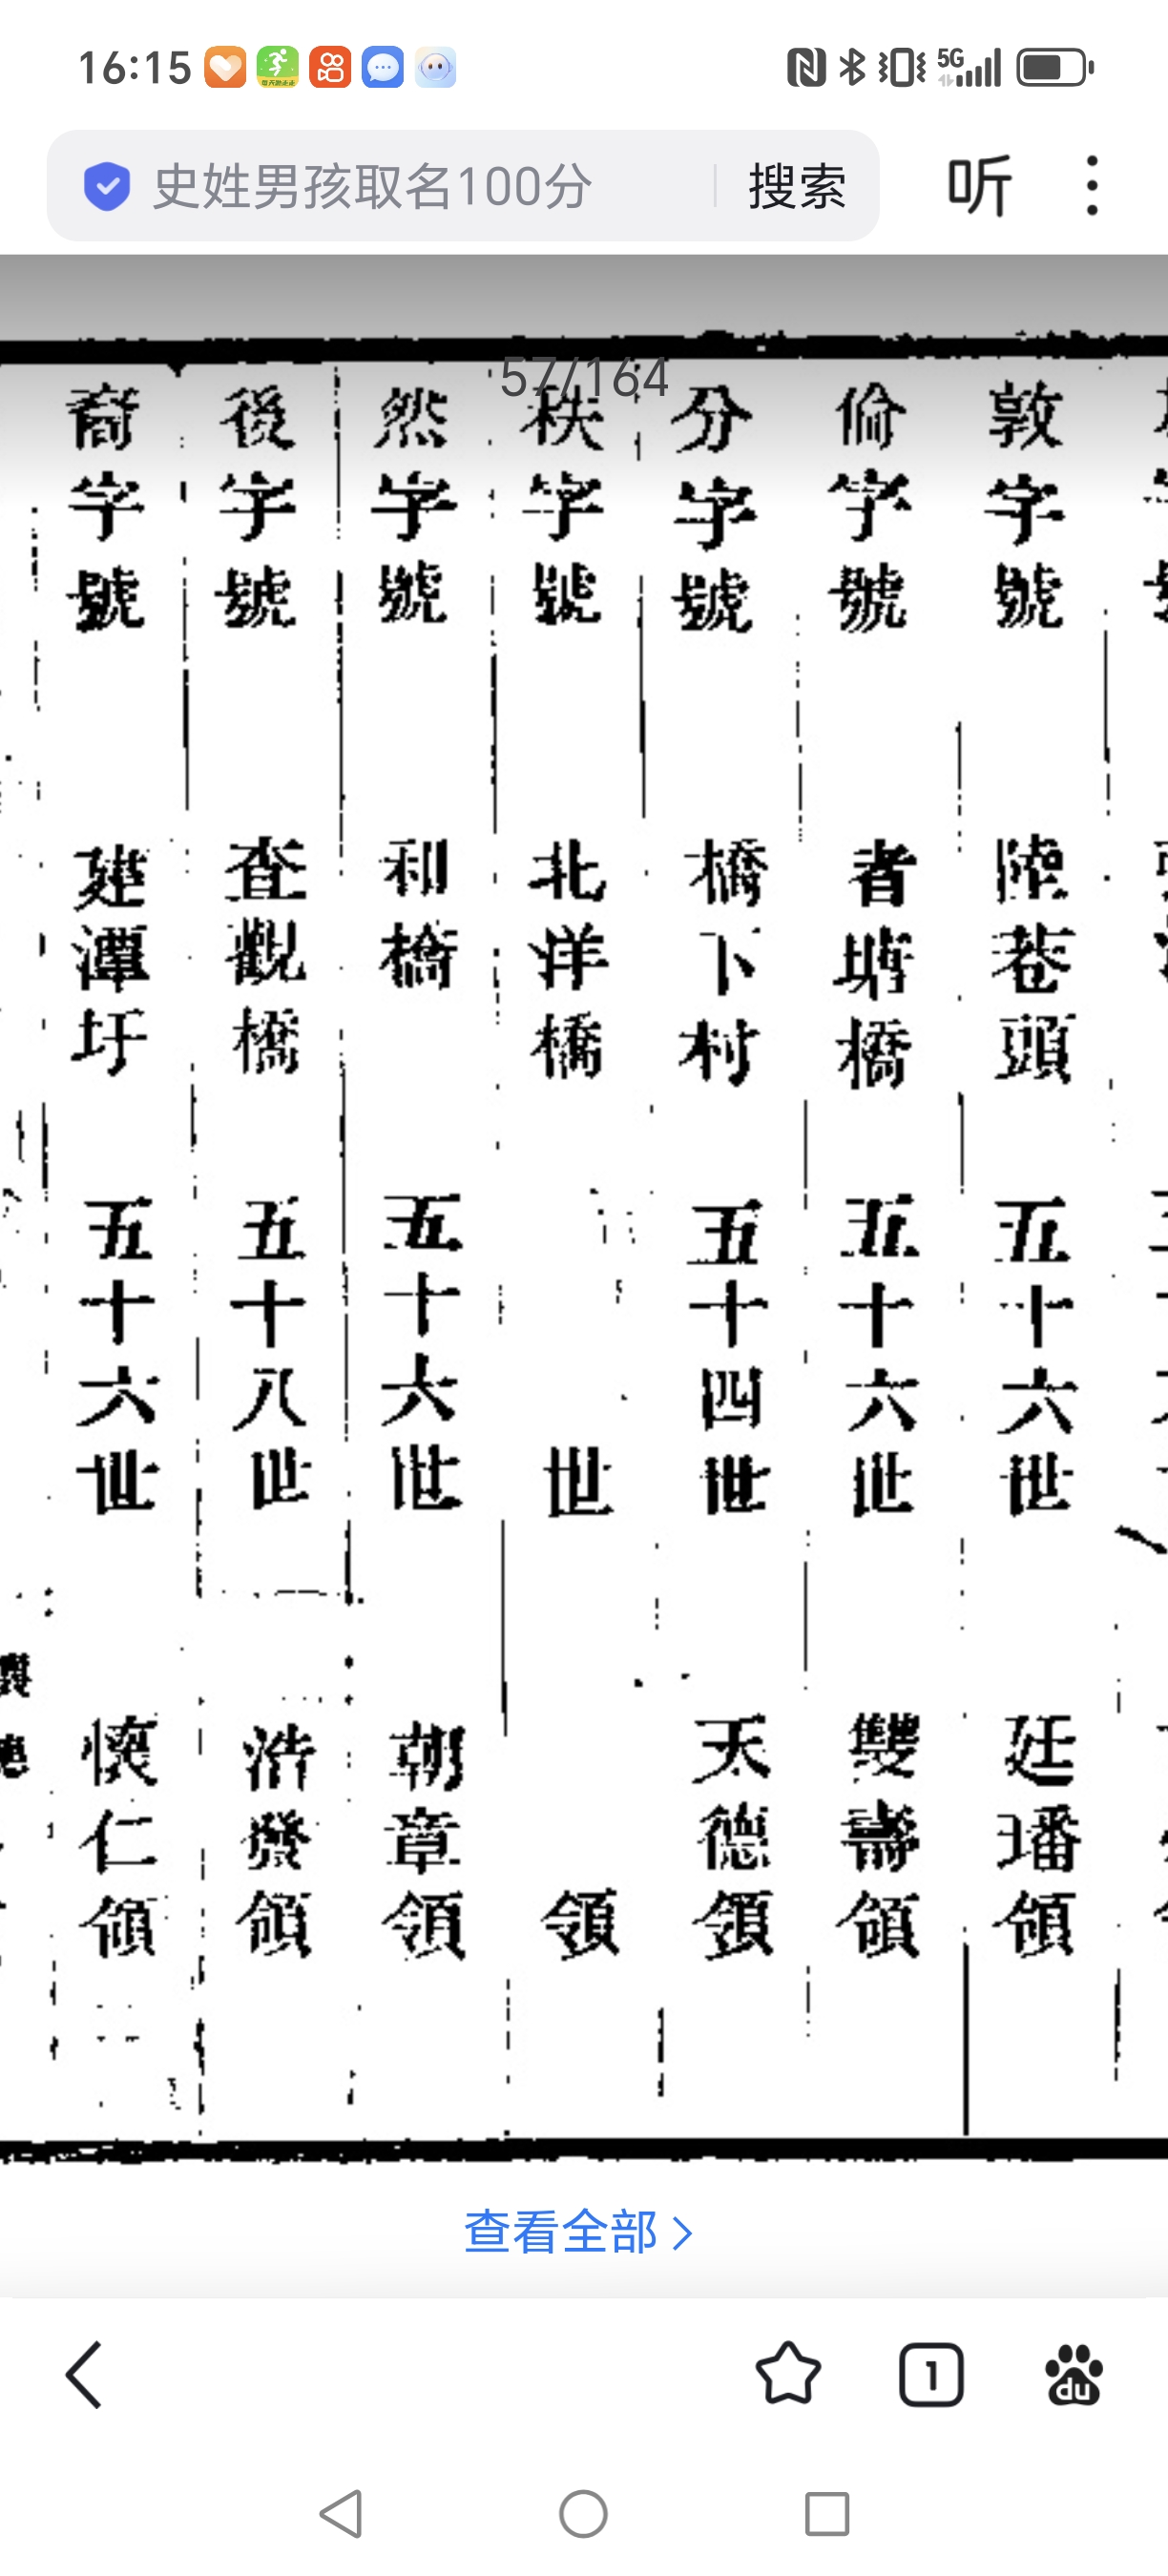 16:15
5G
史姓男孩取名100分
搜索
听
57/164
敦字號 陸巷頭 五十六世 廷璠領
倫字號 者塘橋 五十六世 雙壽領
分字號 橋下村 五十四世 天德領
秩字號 北洋橋 世 領
然字號 和橋 五十六世 朝章領
後字號 查觀橋 五十八世 浩發領
裔字號 建潭圩 五十六世 懷仁領
查看全部
1
du